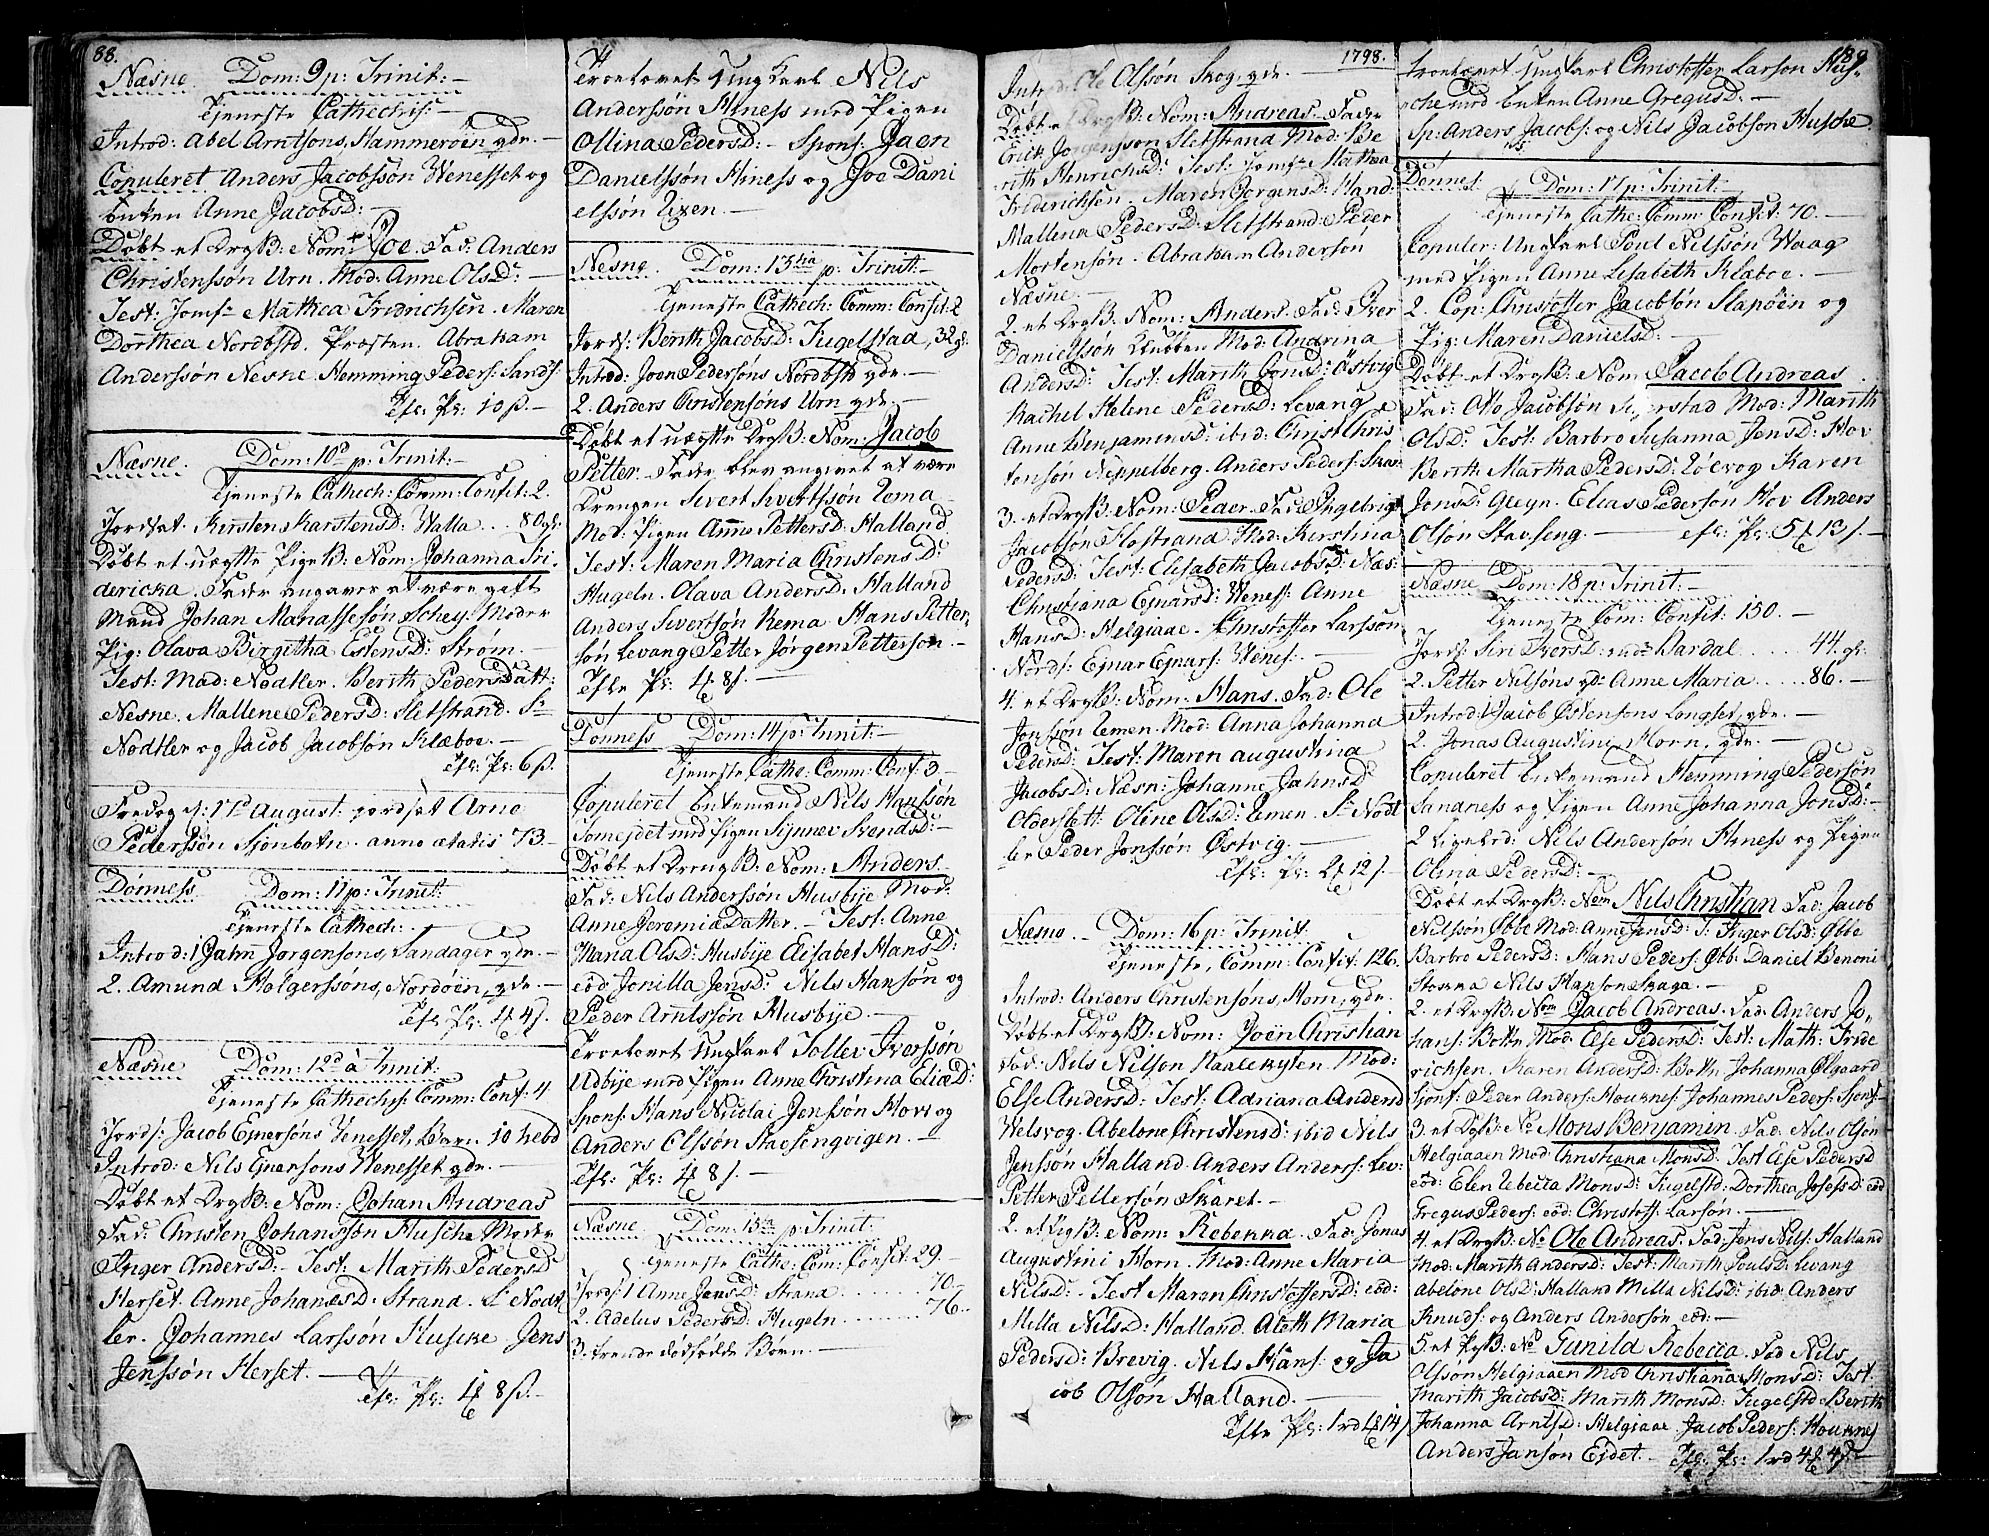 88.
Næsne Dom: 9 p: Trinit: —
Tjeneste Cathechis: —
Introd: Abel Arntsons, Hammerøen qde. —
Copuleret Anders Jacobssøn Wenesset og
Enken Anne Jacobsd: —
Døbt et DrgB: Nom: Joe. Fad: Anders
Christenssøn Urn. Mod: Anne Olsd: —
Test: Jomfr Mathea Fridrichsen. Maren
Dorthea Nordbstd. Præsten. Abraham
Anderssøn Nesne. Hemming Peders: Sands:
Efs: Ps: 10 ß. —
Næsne. Dom: 10d p: Trinit: —
Tjeneste Cathech: Comm: Confit: 2.
Jordfæt. Kirsten Karstensd: Walla .. 80 gl:
Døbt et uægte PigeB: Nom: Johanna Fri-
dericka. Fader angaves at være gift
Mand Johan Manassesøn Schey. Moder
Pig: Olava Birgitha Estensd: Strøm. —
Test: Mad: Nodtler. Berith Pedersdatt:
Nesne. Mallene Pedersd: Sletstrand. Sr
Nodtler og Jacob Jacobsøn Klæboe. —
Efs: Ps: 6 ß. —
Fredag d: 17d August: jordfæt Arne
Pederssøn Sjonbotn. anno ætatis 73. —
Dønness Dom: 11 p: Trinit:
Tjeneste Cathech: —
Introd: 1 Jahn Jørgensøns, Sandager qde. —
2. Amund Holgerssøns, Nordøen, qde. —
Efs: Ps: 1 4 ß. —
Næsne Dom: 12d à Trinit:
Tjeneste Cathechs: Comm: Conf: 4
Jords: Jacob Ejnersøns Venesset, Barn 10 hebd
Introd: Nils Ejnersons Wenesset qde. —
Døbt et DrgB: Nom: Johan Andreas
Fad: Christen Johanssøn Husche Moder
Inger Andersd: — Test: Marith Pedersd
Herset. Anne Johansd. Strand. Sr Nodt
ler. Johannes Larssøn Huscke. Jens
Jenssøn Herset. —
Efs: Ps: 1 8 ß. —
Troelovet Ung Karl Nils
Anderssøn Hiness med Pigen
Ollina Pedersd: — Spons: Jaen
Danielssøn Hiness og Joe Dani
elssøn Zixen. —
Nesne. Dom: 13tia p: Trinit: —
Tjeneste Cathech: Comm: Confit: 2
Jords: Berith Jacobsd: Fugelstad, 32 gl.
Introd: Joen Pedersøns Nordbstd qde. —
2. Anders Christensøns Urn qde. —
Døbt et uægte DrgB: Nom: Jacob
Petter. Fader blev angivet at være
Drengen Sivert Sivertssøn Zema
Mod: Pigen Anne Pettersd: Halland
Test: Maren Maria Christensd:
Hugeln. Olava Andersd: Halland
Anders Sivertsøn Kema. Hans Petter-
søn Levang Petter Jørgen Petterson. —
Efte Ps: 1 8 ß. —
Dønness Dom: 14 p: Trinit: —
Tjeneste Cathe: Comm: Conf: 3 —
Copuleret Enkemand Nils Hanssøn
Somejdet med Pigen Sijnnev Svendsd: —
Døbt et DrengB: Nom: Anders.
Fad: Nils Anderssøn Husbije Mod:
Anne Jeremiædatter. — Test: Anne
Maria Olsd: Husbije Elisabet Hansd:
eod Jonilla Jensd: Nils Hansøn og
Peder Arntssøn Husbije. —
Troelovet Ungkarl Tollev Iverssøn
Udbije med Pigen Anne Christina Eliæd:
Spons: Hans Nicolai Jenssøn Hov og
Anders Olssøn Stafsengvigen. —
Efs: Ps: 1 8 ß. —
Næsne. Dom: 15ta p: Trinit:
Tjeneste Cathe: Com: Confit: 29. —
Jords: 1 Anne Jensd: Strand ....... 70 —
2. Adelus Pedersd: Hugeln ....... 76..
3. trende dødfødde Børn. —
1798.
Introd: Ole Olssøn Skog, qde. —
Døbt et DrgB: Nom: Andreas. Fader
Erick Jørgengson Sletstrand Mod: Be
rith Henrichsd: Test: Jomfr Mathea
Friderichsen. Maren Jørgensd: Hand:
Mallena Pedersd: Sletstrand. Peder
Mortensøn. Abraham Andersøn
Næsne. —
2. et DrgB: Nom: Anders. Fad: Iver
Danielssøn Knubben Mod: Andrina
Andersd: Test: Marith Jonsd: Østvig
Rachel Helene Pedersd: Levang
Anne Benjaminsd: ibid: Christ: Chris
tensøn Neppelberg. Anders Peders: Skar
3. et DrgB: Nom: Peder. Fad: Ingebrigt
Jacobsøn Flostrand Mod: Kirstina
Pedersd: Test: Elisabeth Jacobsd: Næs:
Christiana Ejnarsd: Wenes: Anne
Hansd: Helgiaae. Christoffer Larssøn
Nords: Ejnar Ejnars: Wenes:. —
4. et DrgB: Nom: Hans. Fad: Ole
Jonssøn Zemen. Mod: Anna Johanna
Pedersd: Test: Maren augustina
Jacobsd: Næsn: Johanne Jahnsd:
Olderslett: Oline Olsd: Zemen. Sr Nodt
ler Peder Jonssøn Østvig. —
Efs: Ps: 2 12 ß. —
Næsne. — Dom: 16 p: Trinit:
Tjeneste, Comm: Confit: 126. —
Introd: Anders Christensøns, Hom, qde.
Døbt et DrgB: Nom: Joen Christian
Fad: Nils Nilson Naalekyten. Mod:
Else Andersd: Test: Adriana Andersd
Welsvog. Abelone Christensd: ibid Nils
Jenssøn Halland. Anders Anders: Lev:
Petter Pettersøn Skaret. —
2. et PigB: Nom: Rebekka. Fad: Jonas
Augustini Horn. Mod: Anne Maria
Nilsd: — Test Maren Christoffersd: eod:
Milla Nilsd: Halland. Aleth Maria
Pedersd: Brevig. Nils Hans: og Ja
cob Olssøn Halland. —
Efte Ps: 1 rd 1 14 ß
189
troelovet Ungkarl Christoffer Larson Hus-
che med Enken Anne Gregusd: —
Sp: Anders Jacobs: og Nils Jacobson Husche.
Dønnes Dom: 17 p: Trinit: —
Tjeneste Cathe: Comm: Confit: 70. —
Copuler: Ungkarl Poul Nilssøn Waag
med Pigen Anne Lisabeth Klaboe. —
2. Cop: Christoffer Jacobsøn Slapøen og
Pig: Maren Danielsd: —
Døbt et DrgB: Nom: Jacob Andreas.
Fad: Otto Jacobsøn Sigerstad Mod: Marith
Olsd: Test: Barbro Susanna Jensd: Hov
Berith Martha Pedersd: Zoevog Karen
Jonsd: Gleyn. Elias Pederson Hov Anders
Olsøn Stavseng. — Efs: Ps: 5 13 ß. —
Næsne Dom: 18 p: Trinit: —
Tjeneste Com: Confit: 150. —
Jords: Siri Iversd: Dardal ..... 44. gl:
2. Petter Nilsøns qd: Anne Maria ..... 86. —
Introd: 1 Jacob Østensøns Longset, qde. —
2. Jonas Augustini Horn, qde. —
Copuleret Enkemand Hemming Pedersøn
Sandness og Pigen Anne Johanna Jonsd: —
2 ligeled: Nils Andersøn Hiness og Pigen
Olina Pedersd: —
Døbt et DrgB: Nom Nils Christian Fad: Jacob
Nilssøn Øbbe Mod: Anne Jensd: T: Inger Olsd: Øbbe
Barbro Pedersd: Hans Peders: Øbb: Daniel Benoni
Stokka Nils Hanson Skaga. —
2. et DrgB: Nom Jacob Andreas. Fad: Anders Jo-
hans: Botn Mod: Else Pedersd: Test: Math: Fride
richsen. Karen Andersd: Botn Johanna Ølgaard
Sjons: Peder Anders: Houknes: Johannes Peders: Sjons
3. et DrgB: No Mons Benjamin. Fad: Nils Olsøn
Helgiaaen Mod: Christiana Monsd: Test Else Pedersd
eod: Elen Rebecca Monsd: Fugelstd: Dorthea Josefsd: eod
Gregus Peders: eod: Christoff: Larson. —
4. et DrgB: No Ole Andreas. Fad: Jens Nils: Halland
Mod: Marith Andersd: Test: Marith Poulsd: Levang
abelone Olsd: Halland Milla Nilsd: ibid: Anders
Knuds: og Anders Anderson, eod: —
5. et PgB: No Gunild Rebecca. Fad Nils
Olssøn Helgiaaen Mod Christiana Monsd: Test:
Marith Jacobsd: Marith Monsd: Fugelstd Berith
Johanna Arntsd: Helgiaae. Jacob Peders: Houknes
Anders Jansøn Ejdet. — Efs: Ps: 1 rd 4 4 ß —